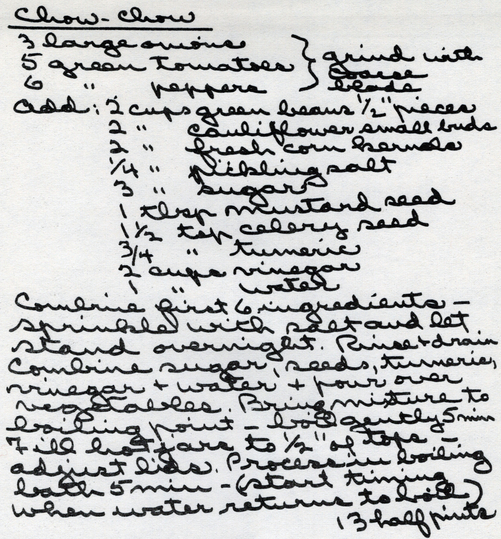 Chow-Chow
3 large onions
5 green tomatoes } grind with
6 " peppers coarse blade
add: 2 cups green beans 1/2" pieces
2 " cauliflower small buds
2 " fresh corn kernels
1/4 " pickling salt
3 " sugar
1 tbsp mustard seed
1 1/2 tsp celery seed
3/4 " tumeric
2 cups vinegar
1 " water
Combine first 6 ingredients -
sprinkle with salt and let
stand overnight. Rinse + drain
Combine sugar, seeds, tumeric,
vinegar + water, + pour over
vegetables. Bring mixture to
boiling point - boil gently 5 mins
Fill hot jars to 1/2" of tops -
adjust lids. Process in boiling
bath 5 min - (start timing
when water returns to boil)
13 half pints